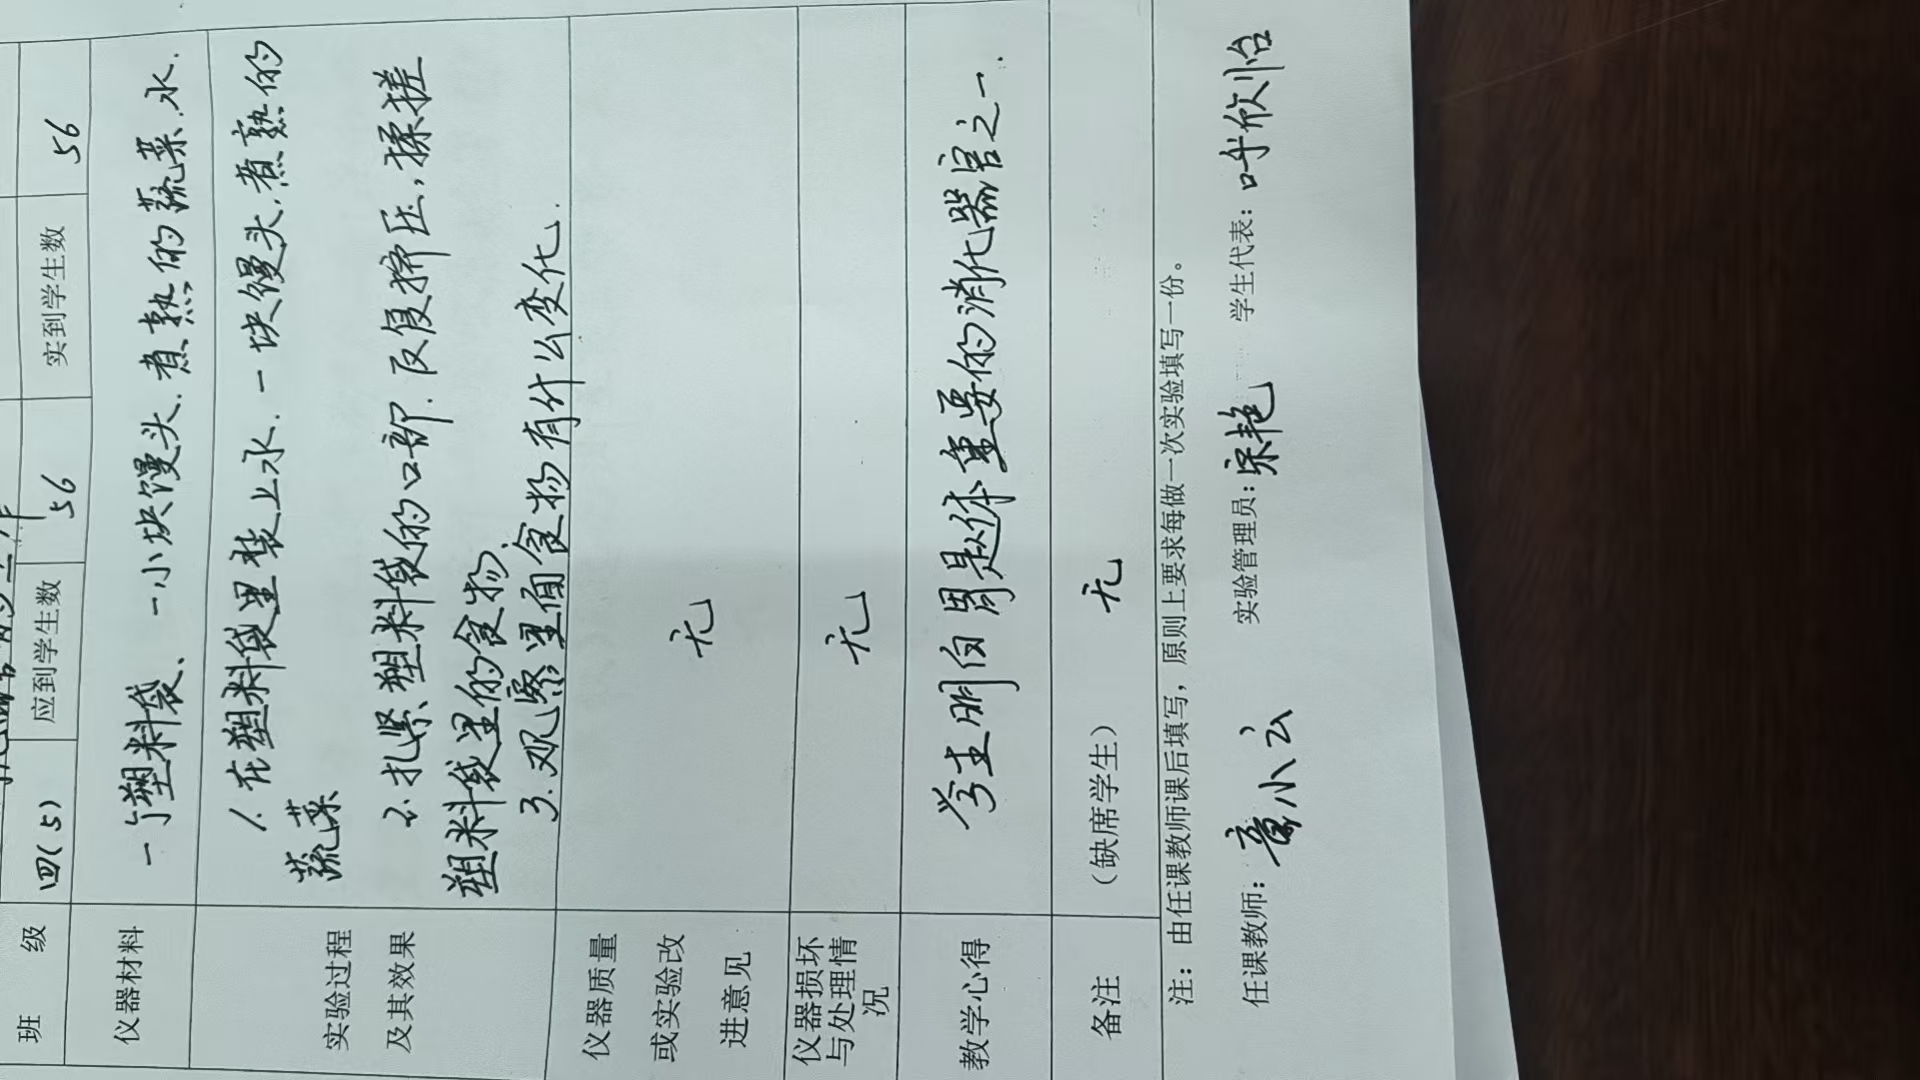 班 级 四(5) 应到学生数 56 实到学生数 56
仪器材料 一个塑料袋、一小块馒头、煮熟的蔬菜、水.
实验过程
及其效果
1. 在塑料袋里装上水、一块馒头、煮熟的
蔬菜
2. 扎紧塑料袋的口部.反复挤压,揉搓
塑料袋里的食物.
3.观察里面食物有什么变化.
仪器质量
或实验改
进意见
无
仪器损坏
与处理情
况
无
教学心得 学生明白胃是体重要的消化器官之一.
备注 (缺席学生) 无
注:由任课教师课后填写,原则上要求每做一次实验填写一份。
任课教师:章小云 实验管理员:宋艳 学生代表:叶欣怡